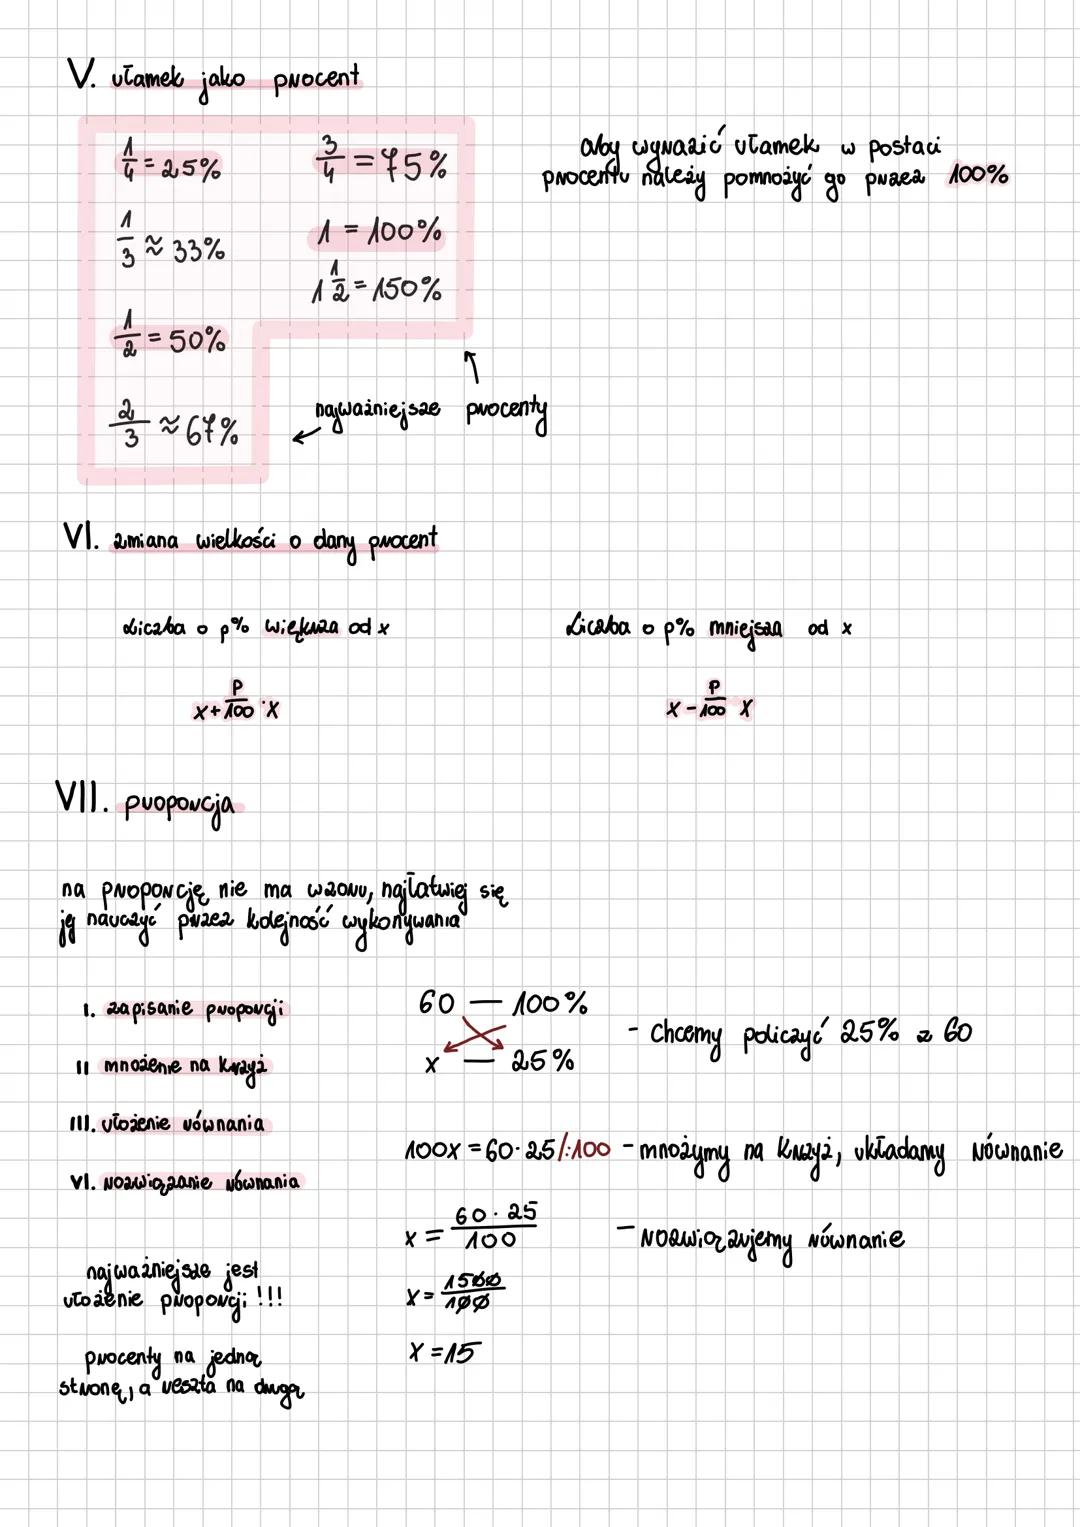 V. ułamek jako procent
1/4 = 25%
3/4 = 75%
aby wyrazić ułamek w postaci
procentu należy pomnożyć go przez 100%
1/3 ≈ 33%
1 = 100%
1 1/2 = 150%
1/2 = 50%
2/3 ≈ 67%
najważniejsze procenty
VI. zmiana wielkości o dany procent
Liczba o p% większa od x
Liczba o p% mniejsza od x
x + p/100 · x
x - p/100 x
VII. proporcja
na proporcję nie ma wzoru, najłatwiej się
ją nauczyć przez kolejność wykonywania
I. zapisanie proporcji
60 — 100%
- Chcemy policzyć 25% z 60
II mnożenie na krzyż
x — 25%
III. ułożenie równania
100x = 60·25 /:100 - mnożymy na krzyż, układamy równanie
VI. rozwiązanie równania
x = 60 · 25/100
- rozwiązujemy równanie
najważniejsze jest
ułożenie proporcji !!!
x = 1500/100
x = 15
procenty na jedną
stronę, a reszta na drugą